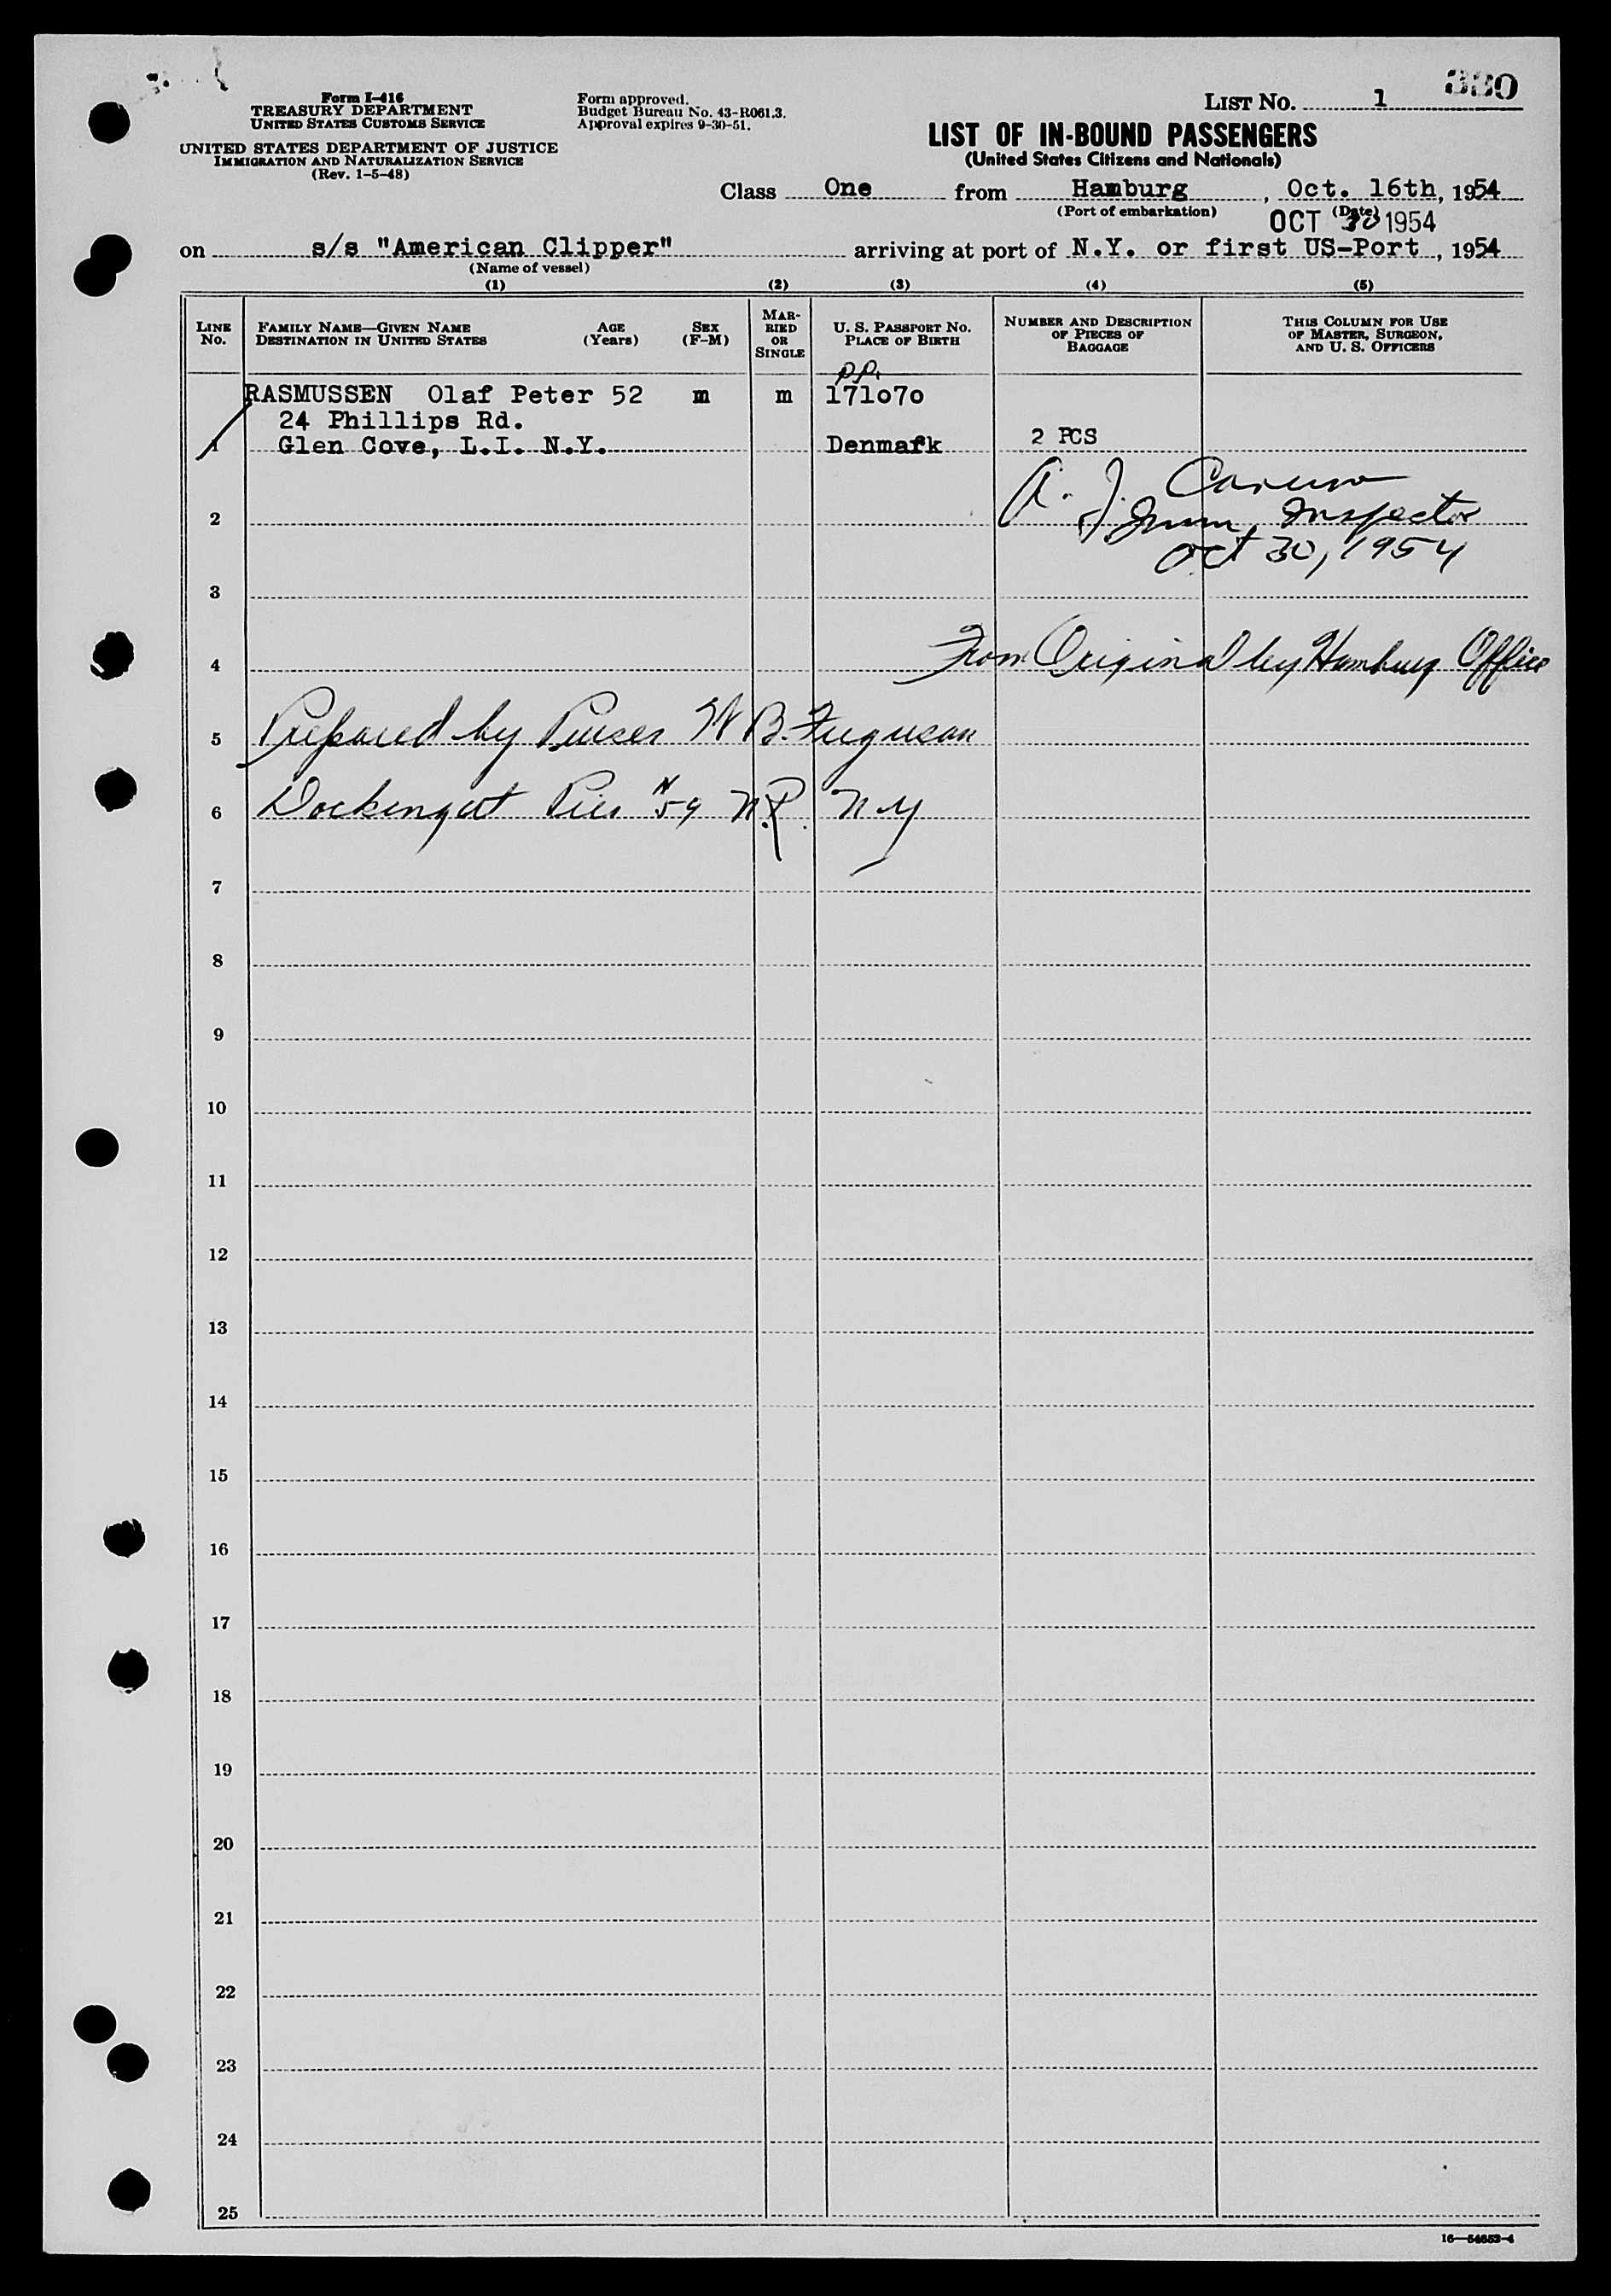 330
Form I-416
TREASURY DEPARTMENT
UNITED STATES CUSTOMS SERVICE
UNITED STATES DEPARTMENT OF JUSTICE
IMMIGRATION AND NATURALIZATION SERVICE
(Rev. 1-5-48)
Form approved.
Budget Bureau No. 43-R061.3.
Approval expires 9-30-51.
LIST NO. 1
LIST OF IN-BOUND PASSENGERS
(United States Citizens and Nationals)
Class One from Hamburg, Oct. 16th, 1954
(Port of embarkation) (Date)
OCT 30 1954
on s/s "American Clipper" arriving at port of N.Y. or first US-Port, 1954
(Name of vessel)
(1) (2) (3) (4) (5)
LINE NO.
FAMILY NAME—GIVEN NAME
DESTINATION IN UNITED STATES
AGE (Years)
SEX (F-M)
MARRIED OR SINGLE
U. S. PASSPORT NO.
PLACE OF BIRTH
NUMBER AND DESCRIPTION OF PIECES OF BAGGAGE
THIS COLUMN FOR USE OF MASTER, SURGEON, AND U. S. OFFICERS
pp.
RASMUSSEN Olaf Peter 52 m m 171o7o
24 Phillips Rd.
1 Glen Cove, L.I. N.Y. Denmark 2 PCS
A. J. Caruso
2 Imm. Inspector
Oct 30, 1954
3
4 From Original by Hamburg Office
5 Prepared by Purser W B. Ferguson
6 Docking at Pier #59 N.R. N Y
7
8
9
10
11
12
13
14
15
16
17
18
19
20
21
22
23
24
25
16—54652-4